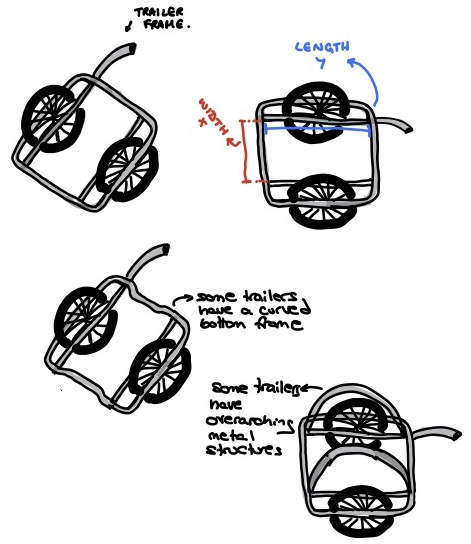 TRAILER
FRAME.
LENGTH
Y
WIDTH
X
some trailers
have a curved
bottom frame
some trailers
have
overarching
metal
structures